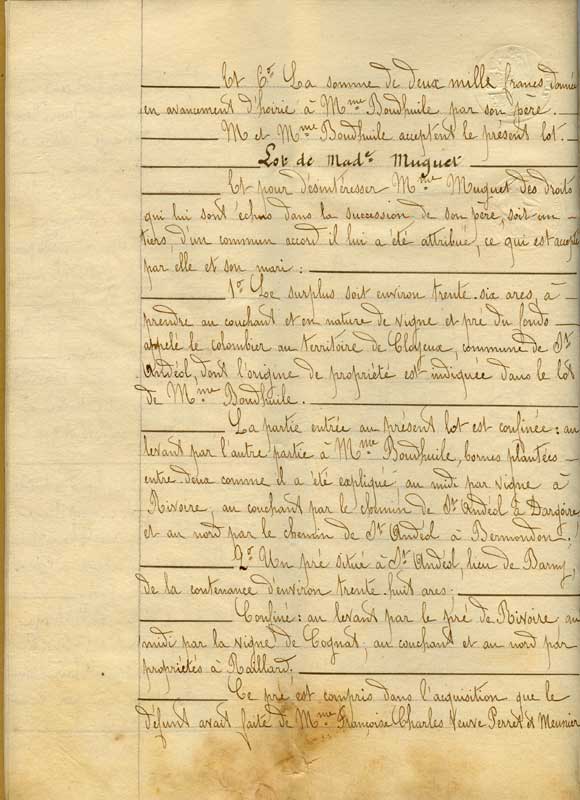 Et 6° La somme de deux mille francs donnée
en avancement d'hoirie à Mme Boudhuile par son père.
M et Mme Boudhuile acceptent le présent lot.
Lot de Made Muguet
Et pour désintéresser Mme Muguet des droits
qui lui sont échus dans la succession de son père, soit en-
tiers, d'un commun accord il lui a été attribué, ce qui est accepté
par elle et son mari :
1° Le surplus soit environ trente-six ares, à
prendre au couchant et en nature de vigne et pré du fonds
appelé le colombier au territoire de Clazeux, commune de St
Andéol, dont l'origine de propriété est indiquée dans le lot
de Mme Boudhuile.
La partie entrée au présent lot est confinée : au
levant par l'autre partie à Mme Boudhuile, bornes plantées
entre deux comme il a été expliqué; au midi par vigne à
Rivoire, au couchant par le chemin de St Andéol à Dargoire
et au nord par le chemin de St Andéol à Bermondon.
2° Un pré situé à St Andéol, lieu de Barny,
de la contenance d'environ trente-huit ares.
Confiné : au levant par le pré de Rivoire au
midi par la vigne de Cognat, au couchant et au nord par
propriétés à Raillard.
Ce pré est compris dans l'acquisition que le
défunt avait faite de Mme Françoise Charles Veuve Perret et Meunier